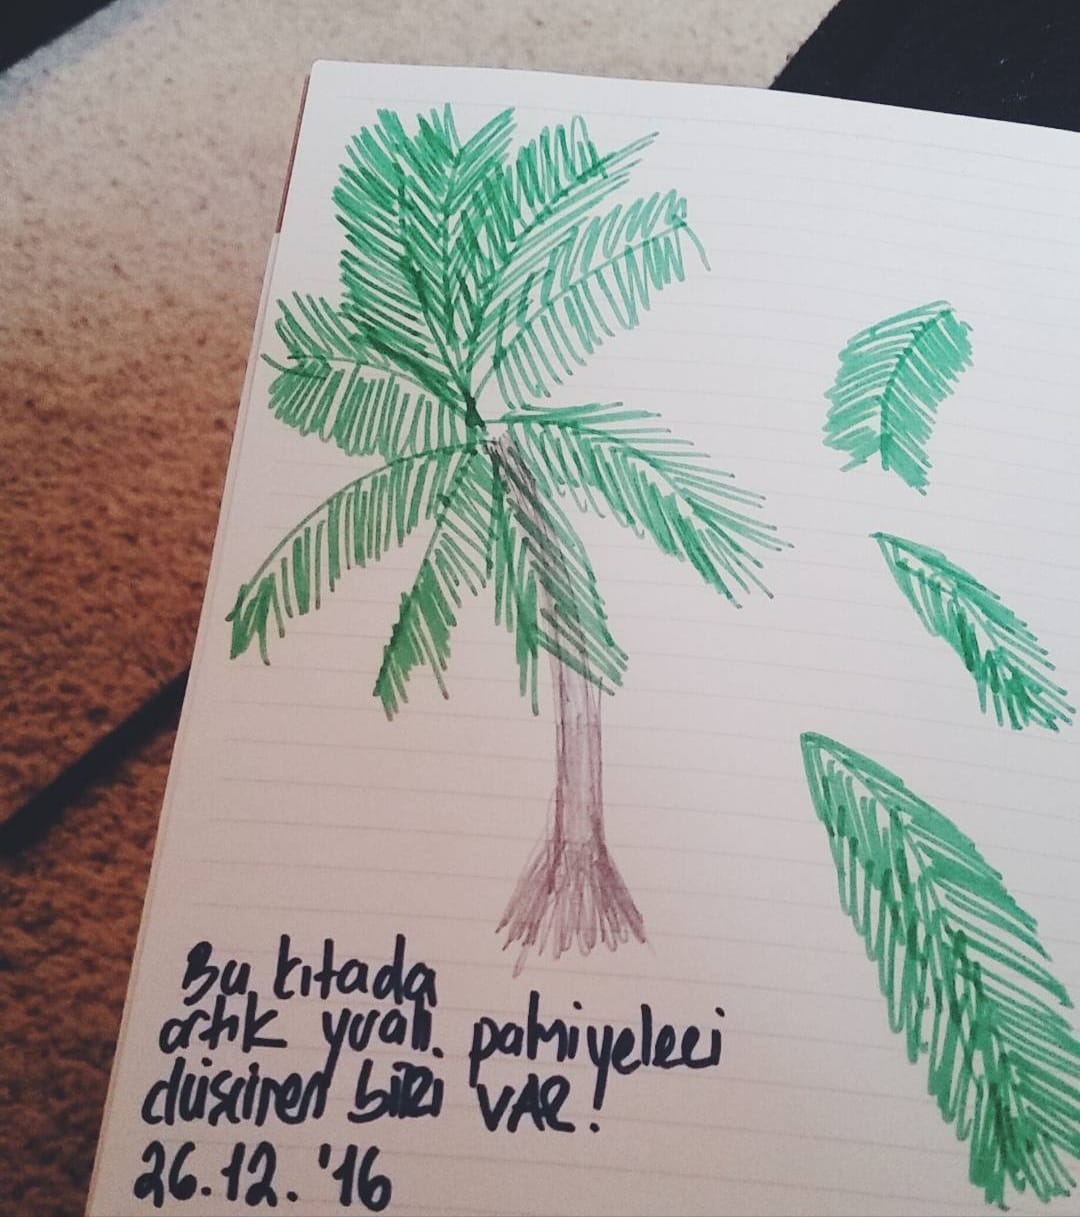 Bu kıtada
artık yaralı palmiyeleri
düşüren biri VAR!
26.12.'16